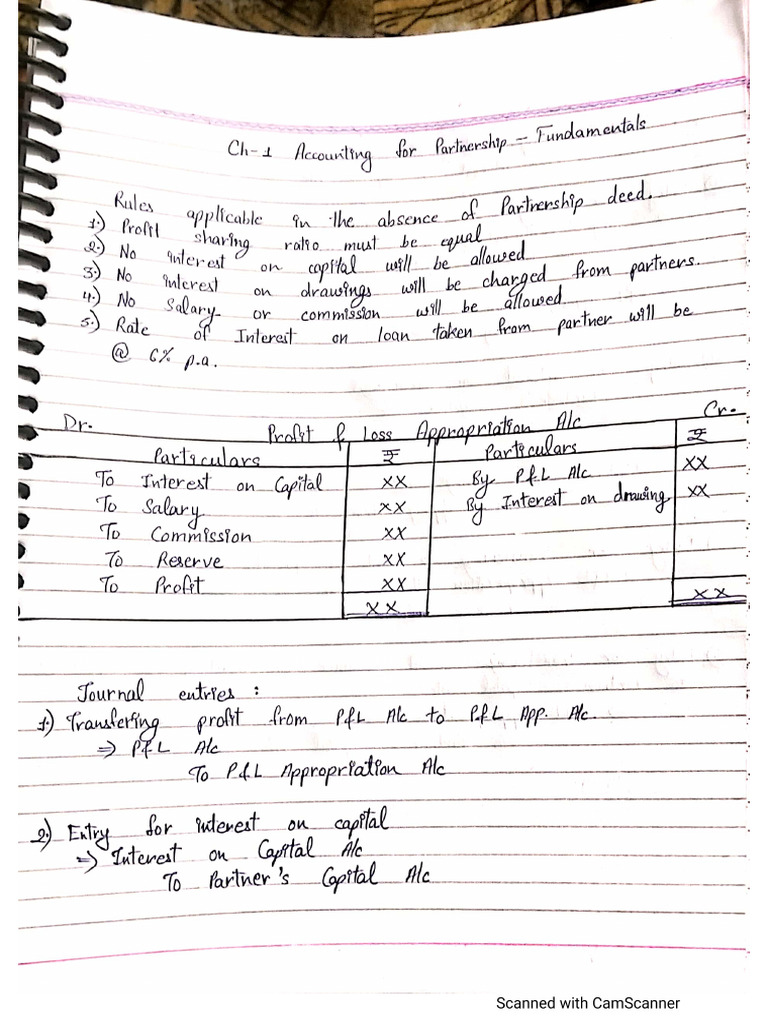 Ch-1 Accounting for Partnership - Fundamentals
Rules applicable in the absence of Partnership deed.
1.) Profit sharing ratio must be equal
2.) No interest on capital will be allowed
3.) No interest on drawings will be charged from partners.
4.) No Salary or commission will be allowed
5.) Rate of Interest on loan taken from partner will be
@ 6% p.a.
Dr. Profit & Loss Appropriation A/c Cr.
Particulars ₹ Particulars ₹
To Interest on Capital XX By P&L A/c XX
To Salary XX By Interest on drawing XX
To Commission XX
To Reserve XX
To Profit XX
XX XX
Journal entries :
1.) Transfering profit from P&L A/c to P&L App. A/c.
⇒ P&L A/c
To P&L Appropriation A/c
2.) Entry for interest on capital
⇒ Interest on Capital A/c
To Partner's Capital A/c
Scanned with CamScanner